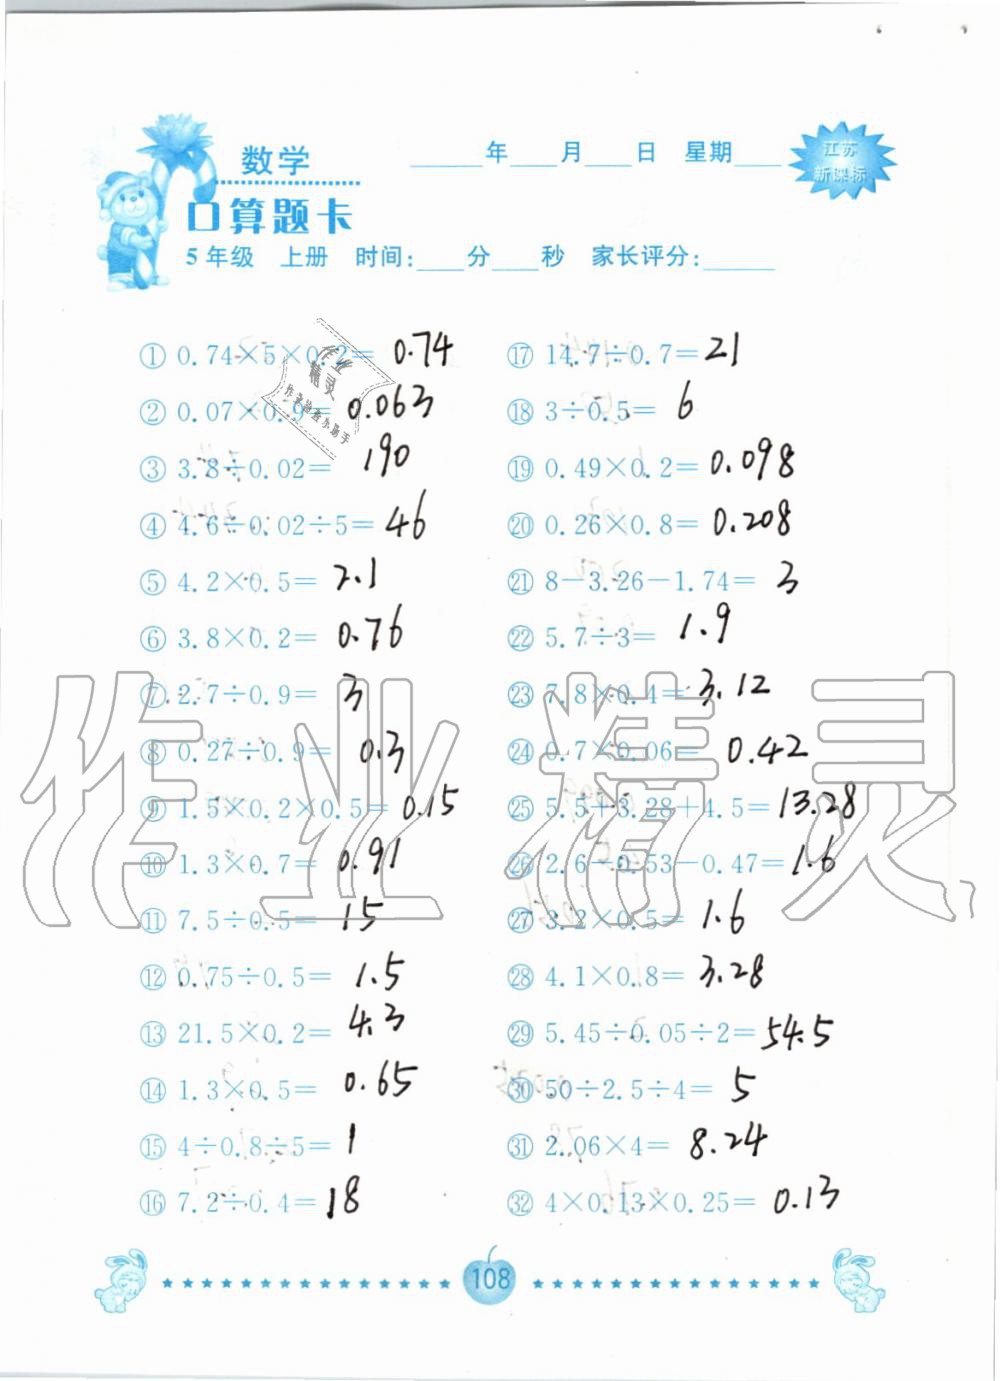 数学 ____年____月____日 星期____
江苏
新课标
口算题卡
5年级 上册 时间:____分____秒 家长评分:______
① 0.74×5×0.2= 0.74
② 0.07×0.9= 0.063
③ 3.8÷0.02= 190
④ 4.6÷0.02÷5= 46
⑤ 4.2×0.5= 2.1
⑥ 3.8×0.2= 0.76
⑦ 2.7÷0.9= 3
⑧ 0.27÷0.9= 0.3
⑨ 1.5×0.2×0.5= 0.15
⑩ 1.3×0.7= 0.91
⑪ 7.5÷0.5= 15
⑫ 0.75÷0.5= 1.5
⑬ 21.5×0.2= 4.3
⑭ 1.3×0.5= 0.65
⑮ 4÷0.8÷5= 1
⑯ 7.2÷0.4= 18
⑰ 14.7÷0.7= 21
⑱ 3÷0.5= 6
⑲ 0.49×0.2= 0.098
⑳ 0.26×0.8= 0.208
㉑ 8-3.26-1.74= 3
㉒ 5.7÷3= 1.9
㉓ 7.8×0.4= 3.12
㉔ 0.7×0.06= 0.42
㉕ 5.5+3.28+4.5= 13.28
㉖ 2.6-0.53-0.47= 1.6
㉗ 3.2×0.5= 1.6
㉘ 4.1×0.8= 3.28
㉙ 5.45÷0.05÷2= 54.5
㉚ 50÷2.5÷4= 5
㉛ 2.06×4= 8.24
㉜ 4×0.13×0.25= 0.13
作业精灵
作业
精灵
作业检查小助手
108